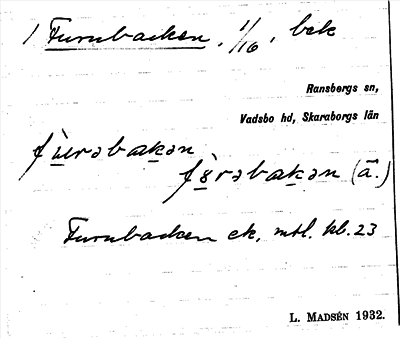 1 Furubacken, 1/16, bck
Ransbergs sn,
Vadsbo hd, Skaraborgs län
fùrəbakən
fùrəbakən (ä.)
Furubacken ek. mtl. kb. 23
L. MADSÉN 1932.